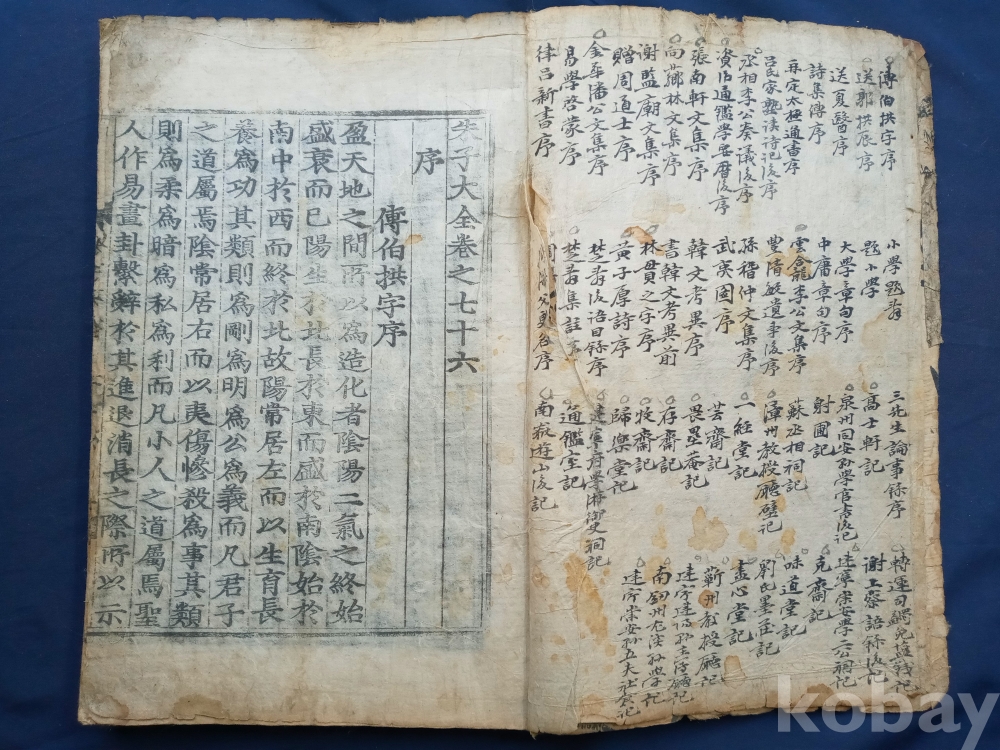 傅伯拱字序
送郭拱辰序
送夏醫序
詩集傳序
再定太極通書序
呂氏家塾讀詩記後序
丞相李公奏議後序
資治通鑑擧要曆後序
張南軒文集序
向薌林文集序
謝監廟文集序
贈周道士序
金華潘公文集序
易學啓蒙序
律呂新書序
小學題辭
題小學
大學章句序
中庸章句序
雲龕李公文集序
豊淸敏遺事後序
孫稽仲文集序
武夷圖序
韓文考異序
書韓文考異前
林貫之字序
黃子厚詩序
楚辭後語目錄序
楚辭集註序
三先生論事錄序
高士軒記
泉州同安縣學官書後記
射圃記
蘇丞相祠記
漳州敎授廳壁記
一經堂記
芸齋記
畏壘菴記
存齋記
牧齋記
歸樂堂記
建寧府學游御史祠記
通鑑室記
南嶽遊山後記
轉運司蠲免鹽錢記
謝上蔡語錄後記
建寧崇安學二公祠記
克齋記
味道堂記
劉氏墨莊記
盡心堂記
蘄州敎授廳記
南劒州尤溪縣學記
建寧崇安縣五夫社倉記
朱子大全卷之七十六
序
傅伯拱字序
盈天地之間所以爲造化者陰陽二氣之終始
盛衰而已陽生於北長於東而盛於南陰始於
南中於西而終於北故陽常居左而以生育長
養爲功其類則爲剛爲明爲公爲義而凡君子
之道屬焉陰常居右而以夷傷慘殺爲事其類
則爲柔爲暗爲私爲利而凡小人之道屬焉聖
人作易畫卦繫辭於其進退消長之際所以示
kobay